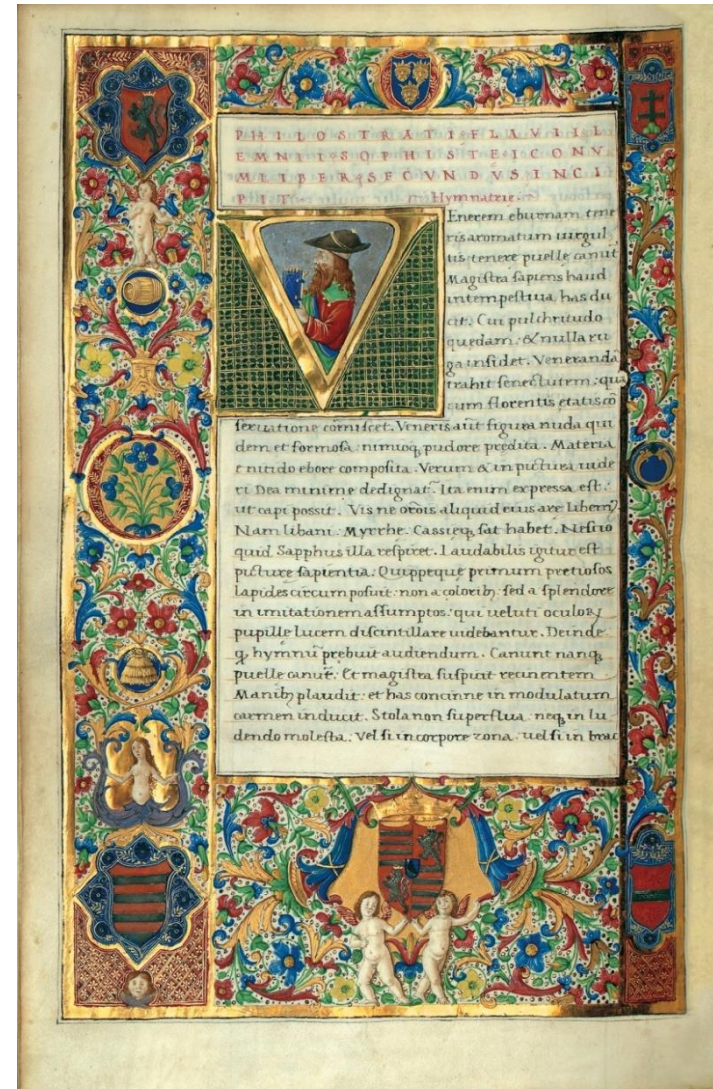 PHILOSTRATI FLAVII L
EMNII SOPHISTE ICONV
M LIBER SECVNDVS INCI
PIT. Hymnatrie.
VEnerem eburnam tene
ris aromatum uirgul
tis tenere puelle canut
Magistra sapiens haud
intempestiua has du
cit. Cui pulchritudo
quedam. & nulla ru
ga insidet. Veneranda
trahit senectutem. qua
cum florentis etatis cō
seruatione cōmiscet. Veneris aūt figura nuda qui
dem et formosa nimioq; pudore predita. Materia
e nitido ebore composita. Verum & in pictura uide
ri Dea minime dedignat. Ita enim expressa est.
ut capi possit. Vis ne orōis aliquid eius are libem
Nam libani. Myrrhe. Cassieq; sat habet. Nescio
quid Sapphus illa respiret. Laudabilis igitur est
picture sapientia. Quippeque primum pretiosos
lapides circum posuit. non a colorib; sed a splendore
in imitationem assumptos. qui ueluti oculoꝝ
pupille lucem discintillare uidebantur. Deinde
q; hymnū prebuit audiendum. Canunt nanq;
puelle canūt. Et magistra suspicit recinentem
Manib; plaudit. et has concinne in modulatum
carmen inducit. Stola non superflua. neq; in lu
dendo molesta. Vel si in corpore zona. uel si in brac